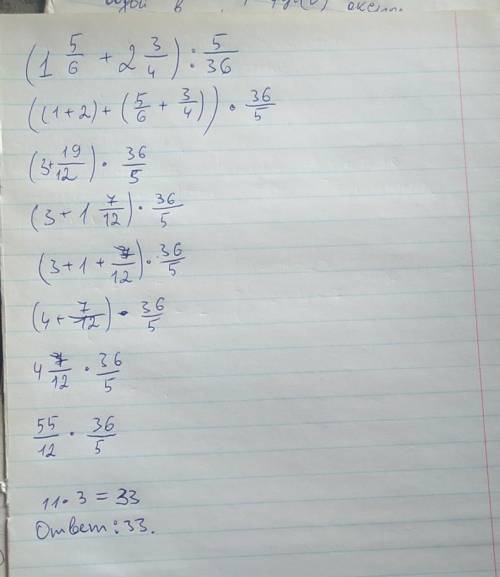 в
(1 5/6 + 2 3/4) : 5/36
((1+2) + (5/6 + 3/4)) • 36/5
(3+ 19/12) • 36/5
(3 + 1 7/12) • 36/5
(3+1+ 7/12) • 36/5
(4+ 7/12) • 36/5
4 7/12 • 36/5
55/12 • 36/5
11 • 3 = 33
Ответ: 33.